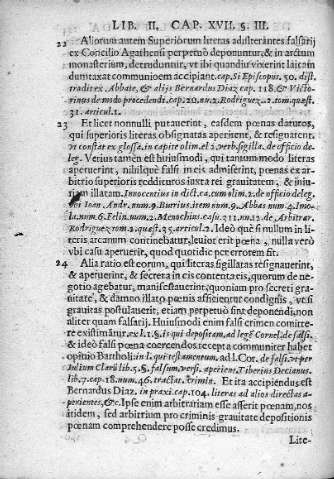 LIB. II. CAP. XVII. §. III.
22 Aliorum autem Superiorum literas adulterantes falsarij
ex Concilio Agathensi perpetuò deponuntur, & in arctum
monasterium, detruduntur, vt ibi quandiu vixerint laicam
dumtaxat communionem accipiant. cap. Si Episcopus. 50. dist.
tradit ex. Abbate, & alijs Bernardus Diaz cap. 118. & Victo-
rinus de modo procedendi. cap. 20. nu. 2. Rodriguez. 2. tom. quæst.
31. articul. 1.
23 Et licet nonnulli putauerint, easdem pœnas datutos,
qui superioris literas obsignatas aperirent, & resignarent.
vt constat ex glossa. in capite olim. el 2. verb. sigilla. de officio de-
leg. Verius tamen est huiusmodi, qui tantum modo literas
aperuerint, nihilque falsi in eis admiserint, pœnas ex ar-
bitrio superioris ferre iuxta rei grauitatem, & iniu-
riam illatam. Innocencius in dict. ca. cum olim. 2. de officio deleg.
Ioan Andr. num. 9. Burrius. item num. 9. Abbas num. 4. Imo-
la. num. 6. Felin. num. 2. Menochius. casu 311. nu. 12. de, Arbitrar.
Rodriguez tom. 2. quæst. 35. articul. 2. Ideò què si nullum in li-
teris arcanum continebatur, leuior erit pœna, nulla verò
vbi casu aperuerit, quod quotidie per errorem fit.
24 Alia ratio est eorum, qui literas sigillatas resignauerint,
& aperuerint, & secreta in eis contenta eis, quorum de ne-
gotio agebatur, manifestauerint, quoniam pro secreti gra-
uitate, & damno illato pœnis afficientur condignis, vt si
grauitas postulauerit, etiam perpetuò sint deponendi, non
aliter quam falsarij. Huiusmodi enim falsi crimen comitte-
re existimatur. ex l. 1. §. is qui depositam. ad legē Cornel. de falsi.
& ideò falsi pœna coercendos recepta communiter habet
opinio Bartholi: in l. qui testamentum. ad l. Cor. de falsi. vt per
Iulium Clarū lib. 5. §. falsum, vers. aperiens, Tiberius Decianus.
lib. 7. cap. 18. num. 46. tractat. crimin. Et ita accipiendus est
Bernardus Diaz. in praxi. cap. 104. literas ad alios directas a-
perientes, &c. Ipse enim arbitrariam esse asserit pœnam, nos
itidem, sed arbitrium pro criminis grauitate depositionis
pœnam comprehendere posse credimus.
Lite-